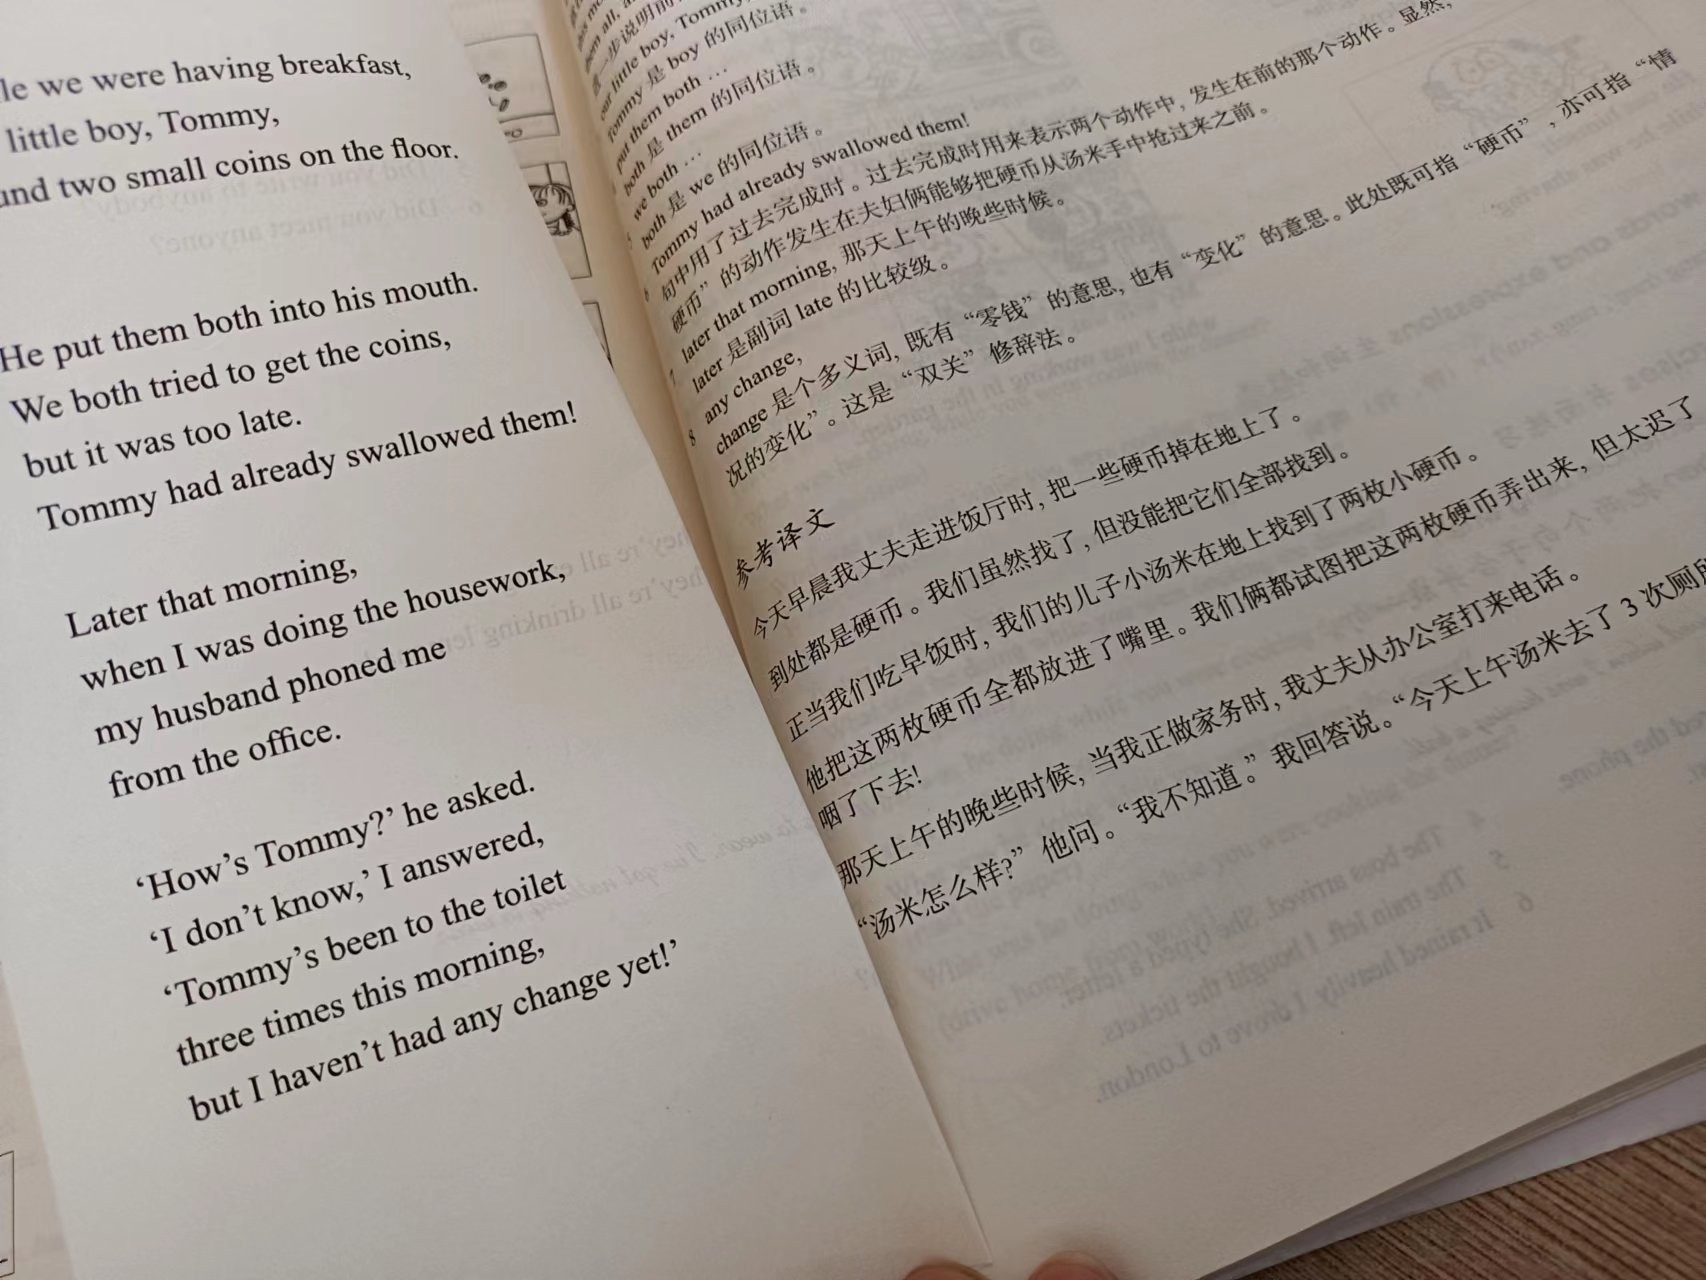 we were having breakfast,
little boy, Tommy,
two small coins on the floor.
He put them both into his mouth.
We both tried to get the coins,
but it was too late.
Tommy had already swallowed them!
Later that morning,
when I was doing the housework,
my husband phoned me
from the office.
‘How’s Tommy?’ he asked.
‘I don’t know,’ I answered,
‘Tommy’s been to the toilet
three times this morning,
but I haven’t had any change yet!’
our little boy, Tommy
Tommy 是 boy 的同位语。
put them both …
both 是 them 的同位语。
we both …
both 是 we 的同位语。
Tommy had already swallowed them!
句中用了过去完成时。过去完成时用来表示两个动作中, 发生在前的那个动作。显然,
硬币” 的动作发生在夫妇俩能够把硬币从汤米手中抢过来之前。
7 later that morning, 那天上午的晚些时候。
later 是副词 late 的比较级。
8 any change,
change 是个多义词, 既有 “零钱” 的意思, 也有 “变化” 的意思。此处既可指 “硬币” , 亦可指 “情
况的变化”。这是 “双关” 修辞法。
参考译文
今天早晨我丈夫走进饭厅时, 把一些硬币掉在地上了。
到处都是硬币。我们虽然找了, 但没能把它们全部找到。
正当我们吃早饭时, 我们的儿子小汤米在地上找到了两枚小硬币。
他把这两枚硬币全都放进了嘴里。我们俩都试图把这两枚硬币弄出来, 但太迟了
咽了下去!
那天上午的晚些时候, 当我正做家务时, 我丈夫从办公室打来电话。
“汤米怎么样?” 他问。“我不知道。” 我回答说。“今天上午汤米去了 3 次厕所